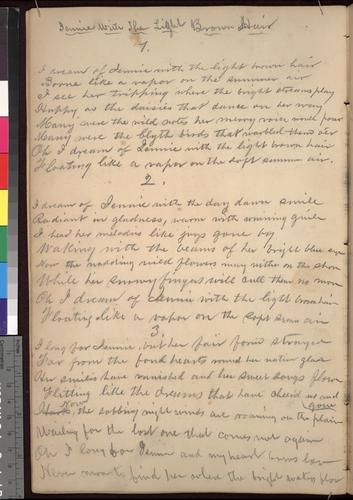 Jennie With the Light Brown Hair
1.
I dream of Jennie with the light brown hair
Borne like a vapor on the summer air
I see her tripping where the bright streams play
Happy as the daisies that dance on her way
Many were the wild notes her merry voice would pour
Many were the blyth birds that warbled them oer
Oh I dream of Jennie with the light brown hair
Floating like a vapor on the soft summer air.
2.
I dream of Jennie with the day dawn smile
Radiant in gladness, warm with winning guile
I hear her melodies like joys gone by
Waking with the beams of her bright blue eye
Now the nodding wild flowers may wither on the shore
While her sunny fingers will cull them no more
Oh I dream of Jennie with the light brown hair
Floating like a vapor on the soft air
3.
I long for Jennie, but her fair form strayed
Far from the fond hearts round her native glad
Her smiles have vanished and her sweet songs flown
Flitting like the dreams that have cheered us and gone
Now, the sobbing night winds are moaning on the plain
Wailing for the lost one that comes not again
Oh I long for Jennie and my heart bows low
Never more to find her where the bright waters flow